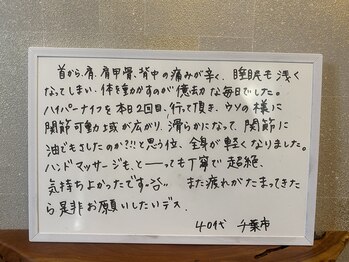 首から、肩、肩甲骨、背中の痛みが辛く、睡眠も浅く
なってしまい、体を動かすのが億劫な毎日でした。
ハイパーナイフを本日2回目、行って頂き、ウソの様に
関節可動域が広がり、滑らかになって、関節に
油でもさしたのか?!!と思う位、全身が軽くなりました。
ハンドマッサージも、と──っても丁寧で超絶、
気持ち良かったです。また疲れがたまってきた
ら是非お願いしたいデス。
40代 千葉市